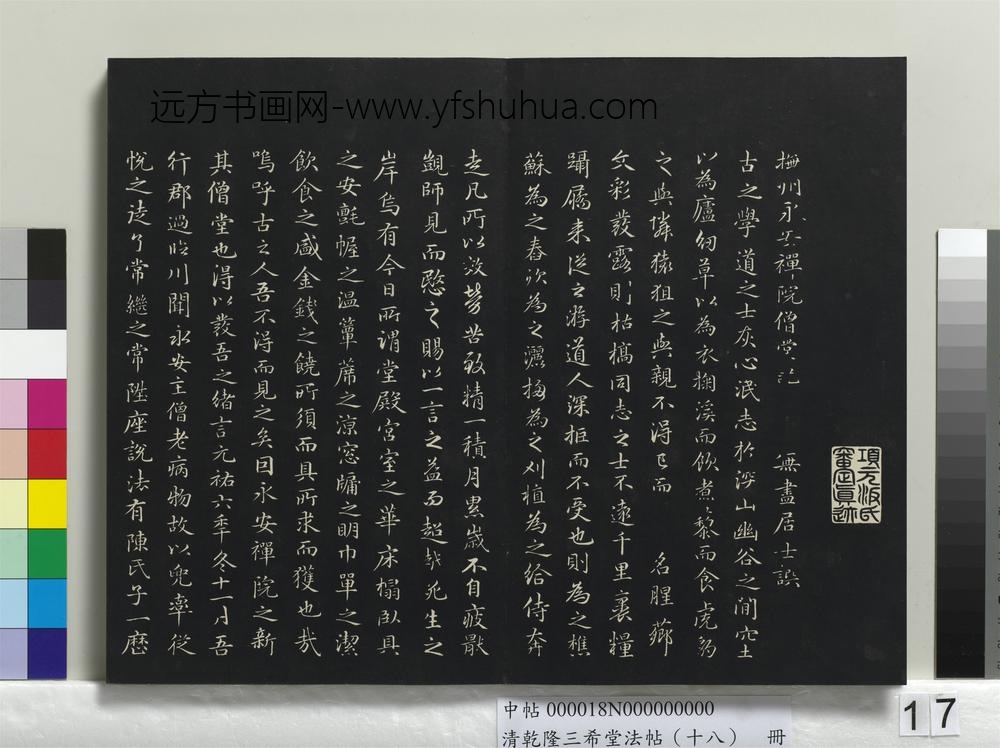 远方书画网-www.yfshuhua.com
撫州永安禪院僧堂記　無盡居士譔
古之學道之士灰心泯志於深山幽谷之間穴土
以為廬紉草以為衣掬溪而飲煮藜而食虎豹
之與隣猿狙之與親不得已而　名腥薌
文彩發露則枯槁同志之士不遠千里裹糧
躡屩来從之游道人深拒而不受也則為之樵
蘇為之舂炊為之灑掃為之刈植為之給侍奔
走凡所以效勞苦致精一積月累歲不自疲厭
覬師見而愍之賜以一言之益而超越死生之
岸烏有今日所謂堂殿宮室之華床榻臥具
之安氈幄之温簟席之涼窓牖之明巾單之潔
飲食之盛金錢之饒所須而具所求而獲也哉
嗚呼古之人吾不得而見之矣因永安禪院之新
其僧堂也得以發吾之緒言元祐六年冬十一月吾
行郡過臨川聞永安主僧老病物故以兜率從
悅之徒了常繼之常陞座說法有陳氏子一歷
項元汴氏審定真跡
中帖 000018N000000000
清乾隆三希堂法帖（十八）　冊
17